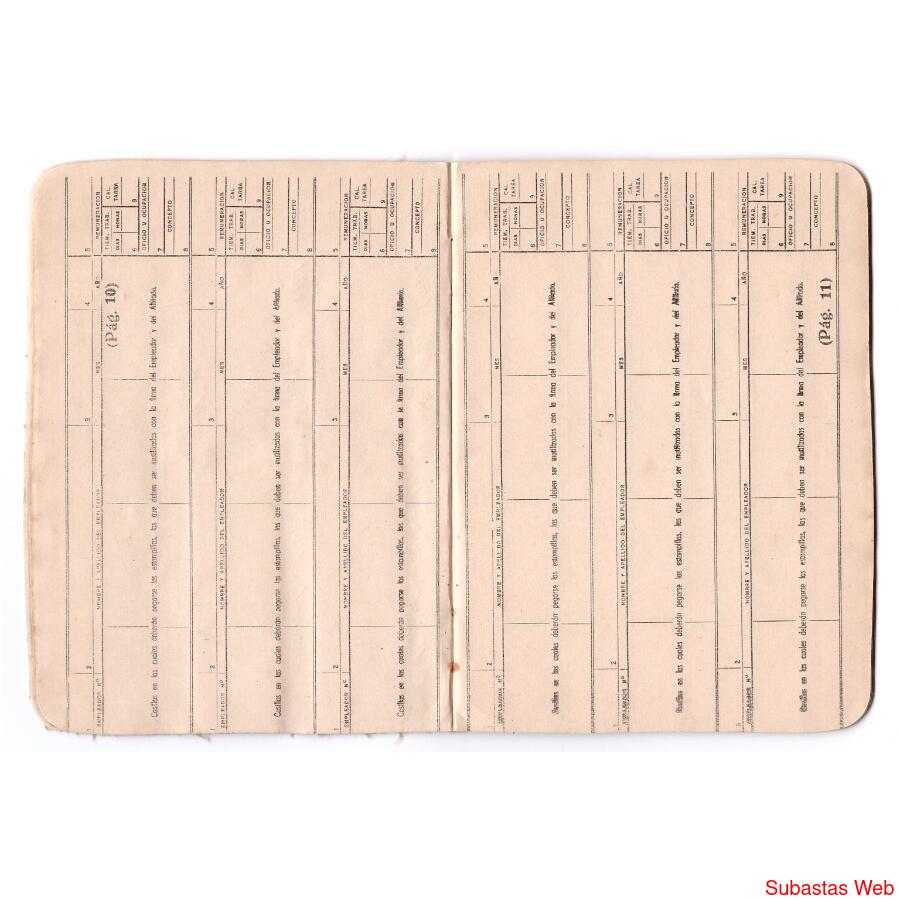 1 2 3 4 5
EMPLEADOR Nº NOMBRE Y APELLIDO DEL EMPLEADOR MES AÑO REMUNERACION
TIEM. TRAB. CAL.
(Pág. 10) DIAS HORAS TAREA
6 9
OFICIO U OCUPACION
Casillas en las cuales deberán pegarse las estampillas, las que deben ser inutilizadas con la firma del Empleador y del Afiliado.
7
CONCEPTO
8
1 2 3 4 5
EMPLEADOR Nº NOMBRE Y APELLIDO DEL EMPLEADOR MES AÑO REMUNERACION
TIEM. TRAB. CAL.
DIAS HORAS TAREA
6 9
OFICIO U OCUPACION
Casillas en las cuales deberán pegarse las estampillas, las que deben ser inutilizadas con la firma del Empleador y del Afiliado.
7
CONCEPTO
8
1 2 3 4 5
EMPLEADOR Nº NOMBRE Y APELLIDO DEL EMPLEADOR MES AÑO REMUNERACION
TIEM. TRAB. CAL.
DIAS HORAS TAREA
6 9
OFICIO U OCUPACION
Casillas en las cuales deberán pegarse las estampillas, las que deben ser inutilizadas con la firma del Empleador y del Afiliado.
7
CONCEPTO
8
2 3 4 5
EMPLEADOR Nº NOMBRE Y APELLIDO DEL EMPLEADOR MES AÑ REMUNERACION
TIEM. TRAB. CAL.
DIAS HORAS TAREA
6 9
OFICIO U OCUPACION
Casillas en las cuales deberán pegarse las estampillas, las que deben ser inutilizadas con la firma del Empleador y del Afiliado.
7
CONCEPTO
8
1 2 3 4 5
EMPLEADOR Nº NOMBRE Y APELLIDO DEL EMPLEADOR MES AÑO REMUNERACION
TIEM. TRAB. CAL.
DIAS HORAS TAREA
6 9
OFICIO U OCUPACION
Casillas en las cuales deberán pegarse las estampillas, las que deben ser inutilizadas con la firma del Empleador y del Afiliado.
7
CONCEPTO
8
1 2 3 4 5
EMPLEADOR Nº NOMBRE Y APELLIDO DEL EMPLEADOR MES AÑO REMUNERACION
TIEM. TRAB. CAL.
DIAS HORAS TAREA
6 9
OFICIO U OCUPACION
Casillas en las cuales deberán pegarse las estampillas, las que deben ser inutilizadas con la firma del Empleador y del Afiliado.
7
CONCEPTO
(Pág. 11) 8
Subastas Web